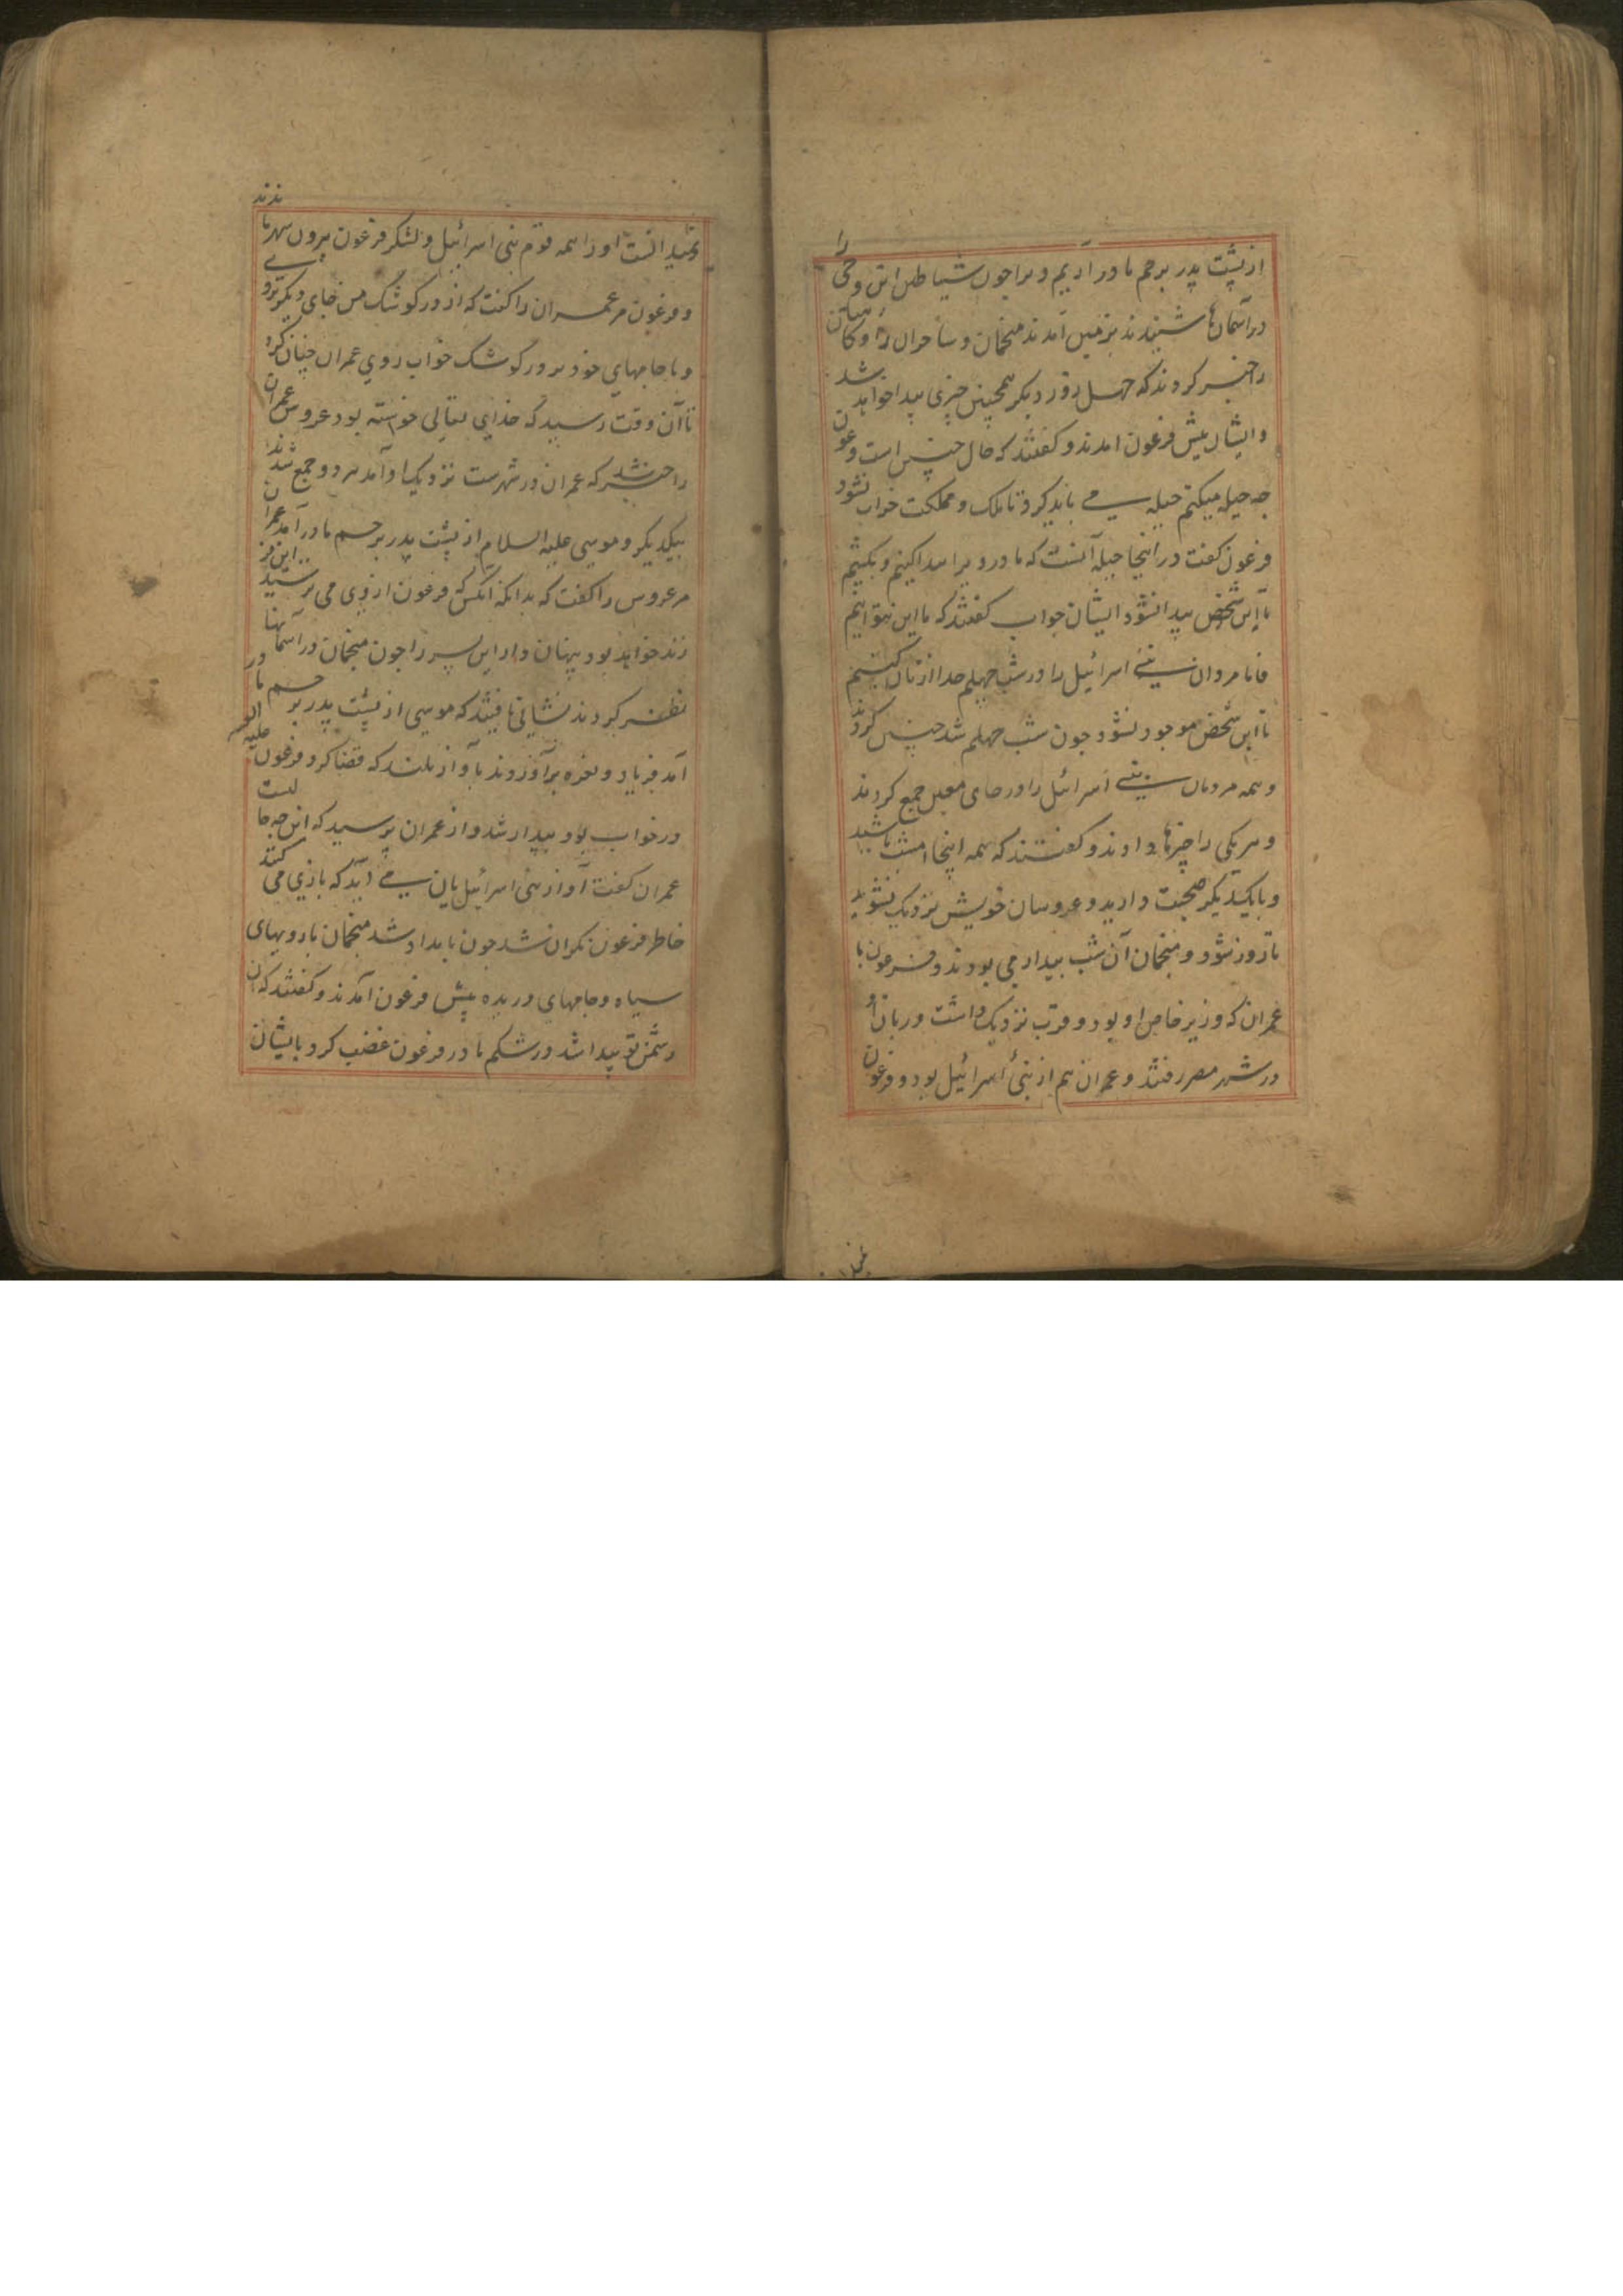 از پشت پدر برحم مادر آریم ویرا چون شیاطین این وحی را
در آسمان‌ها شنیدند بزمین آمدند منجمان و ساحران را و کاهنان
را خبر کردند که چهل روز دیگر همچنین چیزی پیدا خواهد شد
و ایشان پیش فرعون امدند و گفتند که حال چنین است فرعون
چه حیله میکنم حیله می باید کرد تا ملک و مملکت خراب نشود
فرعون گفت در اینجا حیله آنست که مادر ویرا پیدا کنیم و بکشیم
تا این شخص پیدا نشود ایشان جواب گفتند که ما این نتوانیم
فاما مردان بنی اسرائیل را در شب چهلم جدا از زنان کنیم
تا این شخص موجود نشود چون شب چهلم شد چنین کردند
و همه مردمان بنی اسرائیل را در جای معین جمع کردند
و هر یکی را چیزها دادند و گفتند که همه اینجا امشب باشید
و بایکدیگر صحبت دارید و عروسان خویش نزدیک نشوید
تا روز شود و منجمان آن شب بیدار می بودند و فرعون با
عمران که وزیر خاص او بود و قرب نزدیک داشت
در شهر مصر رفتند و عمران هم از بنی اسرائیل بود و فرعون
نمیدانست او را همه قوم بنی اسرائیل و لشکر فرعون بیرون شهر ماندند
و فرعون مر عمران را گفت که از در کوشک من جای دیگر نروی
و با جامهای خود بر در کوشک خواب روی عمران چنان کرد
تا آن وقت رسید که خدای تعالی خواسته بود عروس عمران
را خبر شد که عمران در شهرست نزدیک او آمد هر دو جمع شدند
بیکدیگر و موسی علیه السلام از پشت پدر برحم مادر آمد عمران
مر عروس را گفت که بدانکه آنکس که فرعون از وی می ترسید این فر
زند خواهد بود پنهان دار این سر را چون منجمان در آسمانها
نظر کردند نشانی یافتند که موسی از پشت پدر برحم مادر در
آمد فریاد و نعره برآوردند بآواز بلند که قضا کرد فرعون علیه اللعنه
در خواب بود بیدار شد و از عمران پرسید که این چه جا لست
عمران گفت آواز بنی اسرائیل یان می آید که بازی می کنند
خاطر فرعون نگران شد چون بامداد شد منجمان با رویهای
سیاه و جامهای دریده پیش فرعون آمدند و گفتند که آن
دشمن تو پیدا شد در شکم مادر فرعون غضب کرد با ایشان